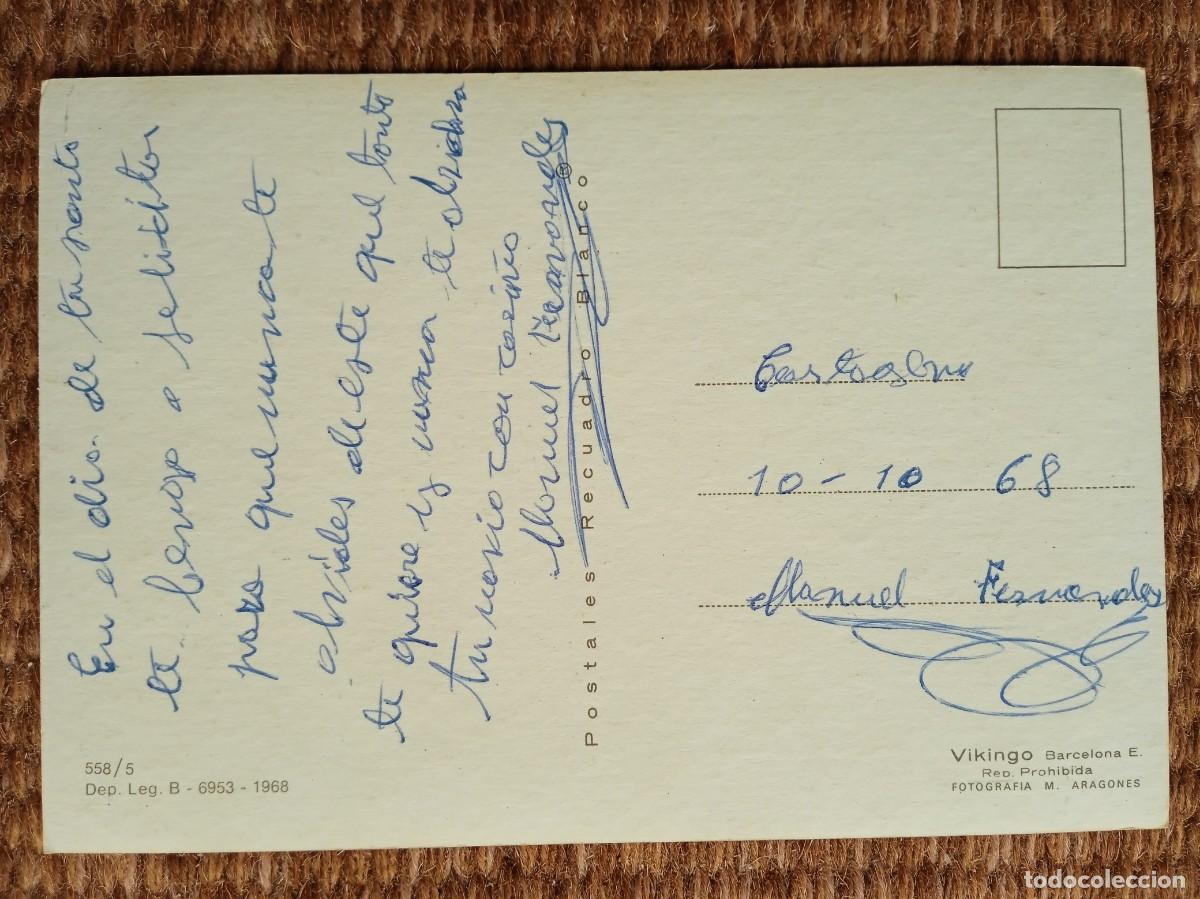 En el dia de tu santo
te bengo a felicitar
para que nunca te
olvides de este que tanto
te quiere y nunca te olvidara
tu novio con cariño
Manuel Fernandes
Postales Recuadro Blanco ®
Cartagena
10 - 10 68
Manuel Fernandes
558/5
Dep. Leg. B - 6953 - 1968
Vikingo Barcelona E.
Rep. Prohibida
FOTOGRAFIA M. ARAGONES
todocoleccion